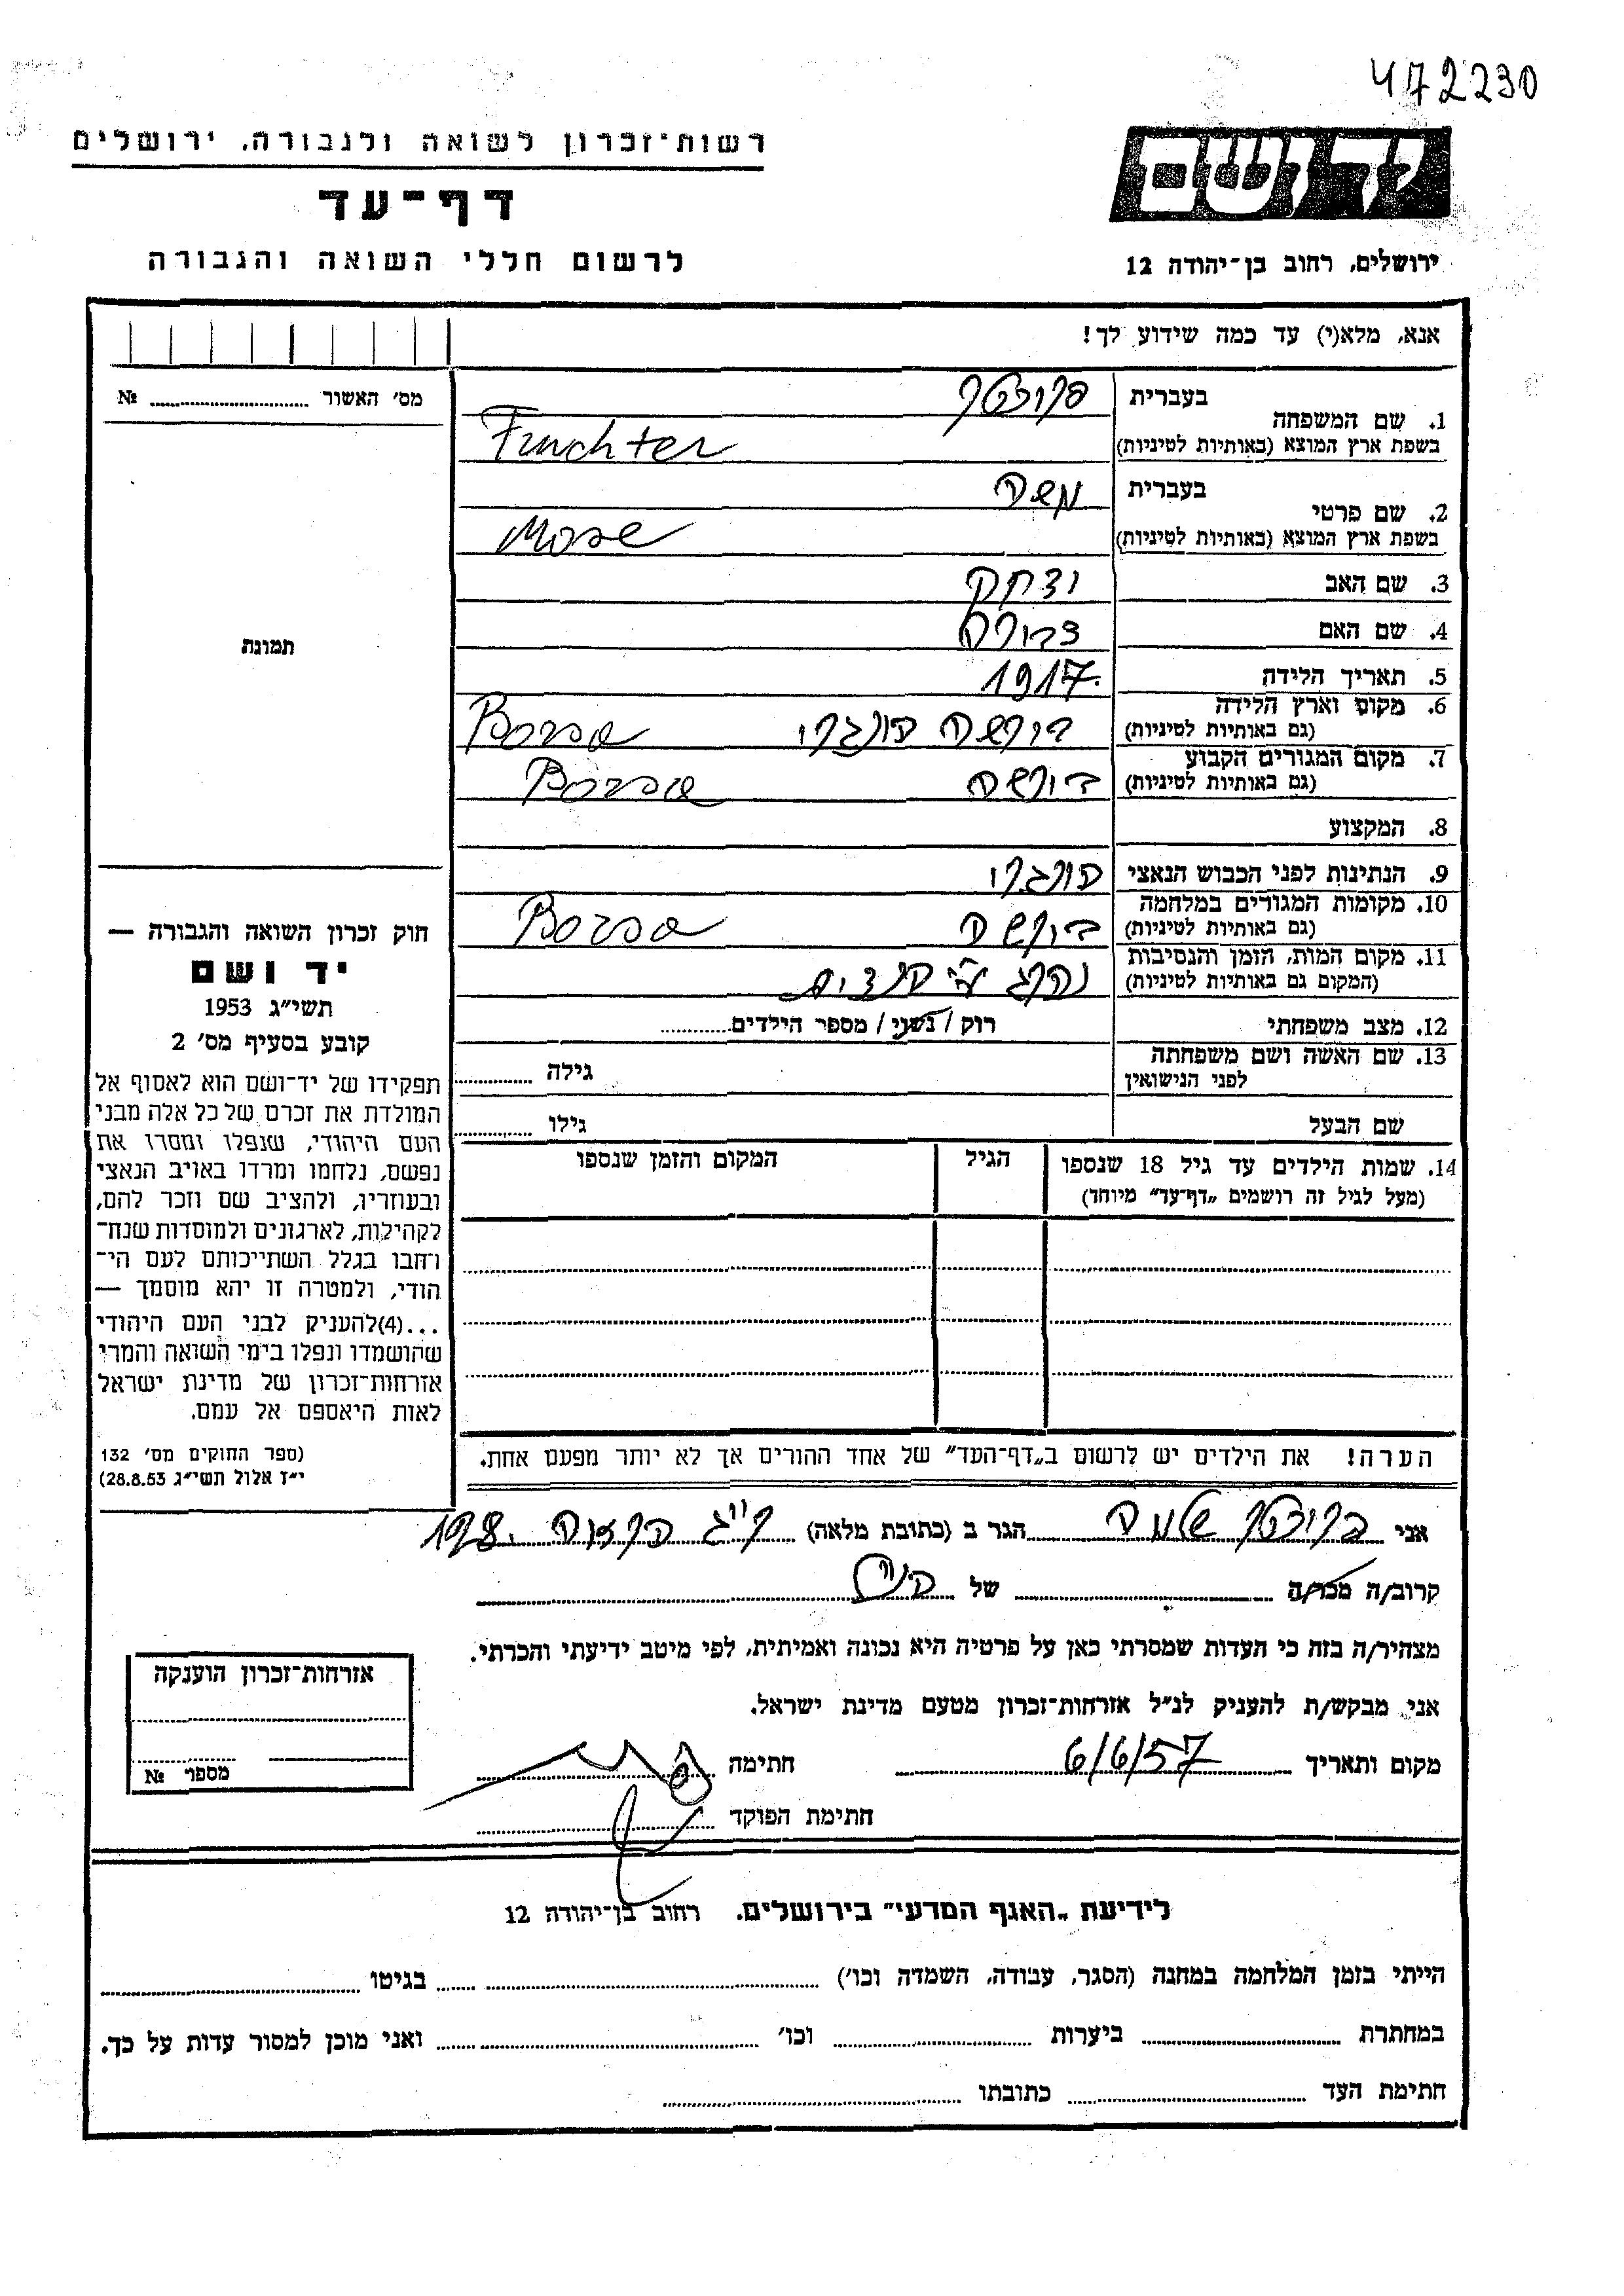 472230
רשות־זכרון לשואה ולגבורה, ירושלים
דף־עד
לרשום חללי השואה והגבורה
יד ושם
ירושלים, רחוב בן־יהודה 12
אנא, מלא(י) עד כמה שידוע לך!
מס׳ האשור № ..........
תמונה
1. שם המשפחה
בעברית פרוכטר
בשפת ארץ המוצא (באותיות לטיניות) Fruchter
2. שם פרטי
בעברית משה
בשפת ארץ המוצא (באותיות לטיניות) Mose
3. שם האב יצחק
4. שם האם
5. תאריך הלידה 1917.
6. מקום וארץ הלידה
(גם באותיות לטיניות) בורשה הונגרי Borsa
7. מקום המגורים הקבוע
(גם באותיות לטיניות) בורשה Borsa
8. המקצוע
9. הנתינות לפני הכבוש הנאצי הונגרי
10. מקומות המגורים במלחמה
(גם באותיות לטיניות) בורשה Borsa
11. מקום המות, הזמן והנסיבות
(המקום גם באותיות לטיניות) נהרג ע״י
12. מצב משפחתי רוק / נשוי / מספר הילדים..........
13. שם האשה ושם משפחתה
לפני הנישואין גילה ..........
שם הבעל גילו ..........
14. שמות הילדים עד גיל 18 שנספו
(מעל לגיל זה רושמים „דף־עד״ מיוחד)
הגיל
המקום והזמן שנספו
הערה! את הילדים יש לרשום ב„דף־העד״ של אחד ההורים אך לא יותר מפעם אחת.
חוק זכרון השואה והגבורה —
יד ושם
תשי״ג 1953
קובע בסעיף מס׳ 2
תפקידו של יד־ושם הוא לאסוף אל
המולדת את זכרם של כל אלה מבני
העם היהודי, שנפלו ומסרו את
נפשם, נלחמו ומרדו באויב הנאצי
ובעוזריו, ולהציב שם וזכר להם,
לקהילות, לארגונים ולמוסדות שנח־
רבו בגלל השתייכותם לעם הי־
הודי, ולמטרה זו יהא מוסמך —
...(4)להעניק לבני העם היהודי
שהושמדו ונפלו בימי השואה והמרי
אזרחות־זכרון של מדינת ישראל
לאות היאספם אל עמם.
(ספר החוקים מס׳ 132
י״ז אלול תשי״ג 28.8.53)
אני פרוכטר הגר ב (כתובת מלאה) 198.
קרוב/ה מכר/ה .......... של
מצהיר/ה בזה כי העדות שמסרתי כאן על פרטיה היא נכונה ואמיתית, לפי מיטב ידיעתי והכרתי.
אני מבקש/ת להעניק לנ״ל אזרחות־זכרון מטעם מדינת ישראל.
מקום ותאריך 6/6/57 חתימה
חתימת הפוקד
אזרחות־זכרון הוענקה
מספר №
לידיעת „האגף המדעי״ בירושלים. רחוב בן־יהודה 12
הייתי בזמן המלחמה במחנה (הסגר, עבודה, השמדה וכו׳) .......... בגיטו ..........
במחתרת .......... ביערות .......... וכו׳ .......... ואני מוכן למסור עדות על כך.
חתימת העד .......... כתובתו ..........